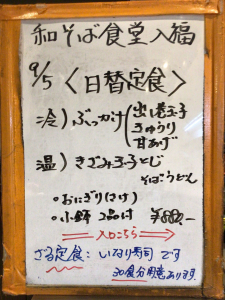 和そば食堂 入福
9/5 〈日替定食〉
冷）ぶっかけ（出し巻玉子
きゅうり
甘あげ
温）きざみ玉子とじ
そばうどん
。おにぎり（さけ）
。小鉢 2品付 ¥880.-
入口こちら
ざる定食：いなり寿司です
30食分用意あります。